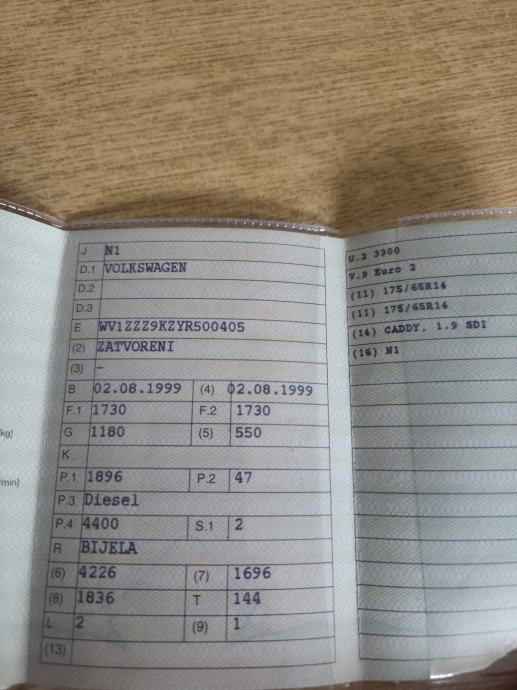 J N1
D.1 VOLKSWAGEN
D.2
D.3
E WV1ZZZ9KZYR500405
(2) ZATVORENI
(3) -
B 02.08.1999 (4) 02.08.1999
F.1 1730 F.2 1730
G 1180 (5) 550
K
P.1 1896 P.2 47
P.3 Diesel
P.4 4400 S.1 2
R BIJELA
(6) 4226 (7) 1696
(8) 1836 T 144
L 2 (9) 1
(13)
kg]
/min]
U.2 3300
V.9 Euro 2
(11) 175/65R14
(11) 175/65R14
(14) CADDY, 1.9 SDI
(16) N1